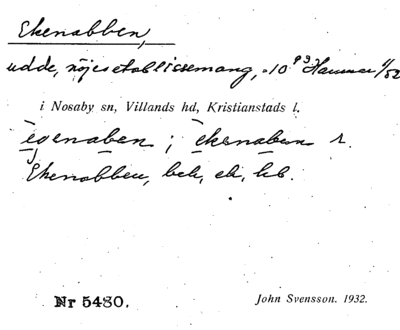 Ekenabben,
udde, nöjesetablissemang, Hammar 1/52
i Nosaby sn, Villands hd, Kristianstads l.
egenaben ; ekenaben r.
Ekenabben, bek, ek, kb.
Nr 5480.
John Svensson. 1932.